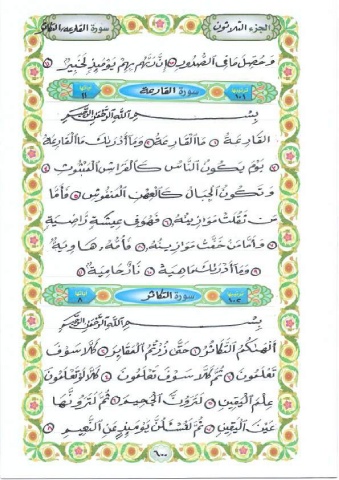 سورة القارعة، التكاثر
الجزء الثلاثون
وَحُصِّلَ مَا فِي الصُّدُورِ ۝ إِنَّ رَبَّهُم بِهِمْ يَوْمَئِذٍ لَّخَبِيرٌ ۝
ترتيبها ١٠١ سورة القارعة آياتها ١١
بِسْمِ اللَّهِ الرَّحْمَٰنِ الرَّحِيمِ
الْقَارِعَةُ ۝ مَا الْقَارِعَةُ ۝ وَمَا أَدْرَىٰكَ مَا الْقَارِعَةُ
۝ يَوْمَ يَكُونُ النَّاسُ كَالْفَرَاشِ الْمَبْثُوثِ ۝
وَتَكُونُ الْجِبَالُ كَالْعِهْنِ الْمَنفُوشِ ۝ فَأَمَّا
مَن ثَقُلَتْ مَوَازِينُهُ ۝ فَهُوَ فِي عِيشَةٍ رَّاضِيَةٍ
۝ وَأَمَّا مَنْ خَفَّتْ مَوَازِينُهُ ۝ فَأُمُّهُ هَاوِيَةٌ
۝ وَمَا أَدْرَىٰكَ مَا هِيَهْ ۝ نَارٌ حَامِيَةٌ ۝
ترتيبها ١٠٢ سورة التكاثر آياتها ٨
بِسْمِ اللَّهِ الرَّحْمَٰنِ الرَّحِيمِ
أَلْهَىٰكُمُ التَّكَاثُرُ ۝ حَتَّىٰ زُرْتُمُ الْمَقَابِرَ ۝ كَلَّا سَوْفَ
تَعْلَمُونَ ۝ ثُمَّ كَلَّا سَوْفَ تَعْلَمُونَ ۝ كَلَّا لَوْ تَعْلَمُونَ
عِلْمَ الْيَقِينِ ۝ لَتَرَوُنَّ الْجَحِيمَ ۝ ثُمَّ لَتَرَوُنَّهَا
عَيْنَ الْيَقِينِ ۝ ثُمَّ لَتُسْأَلُنَّ يَوْمَئِذٍ عَنِ النَّعِيمِ ۝
٦٠٠